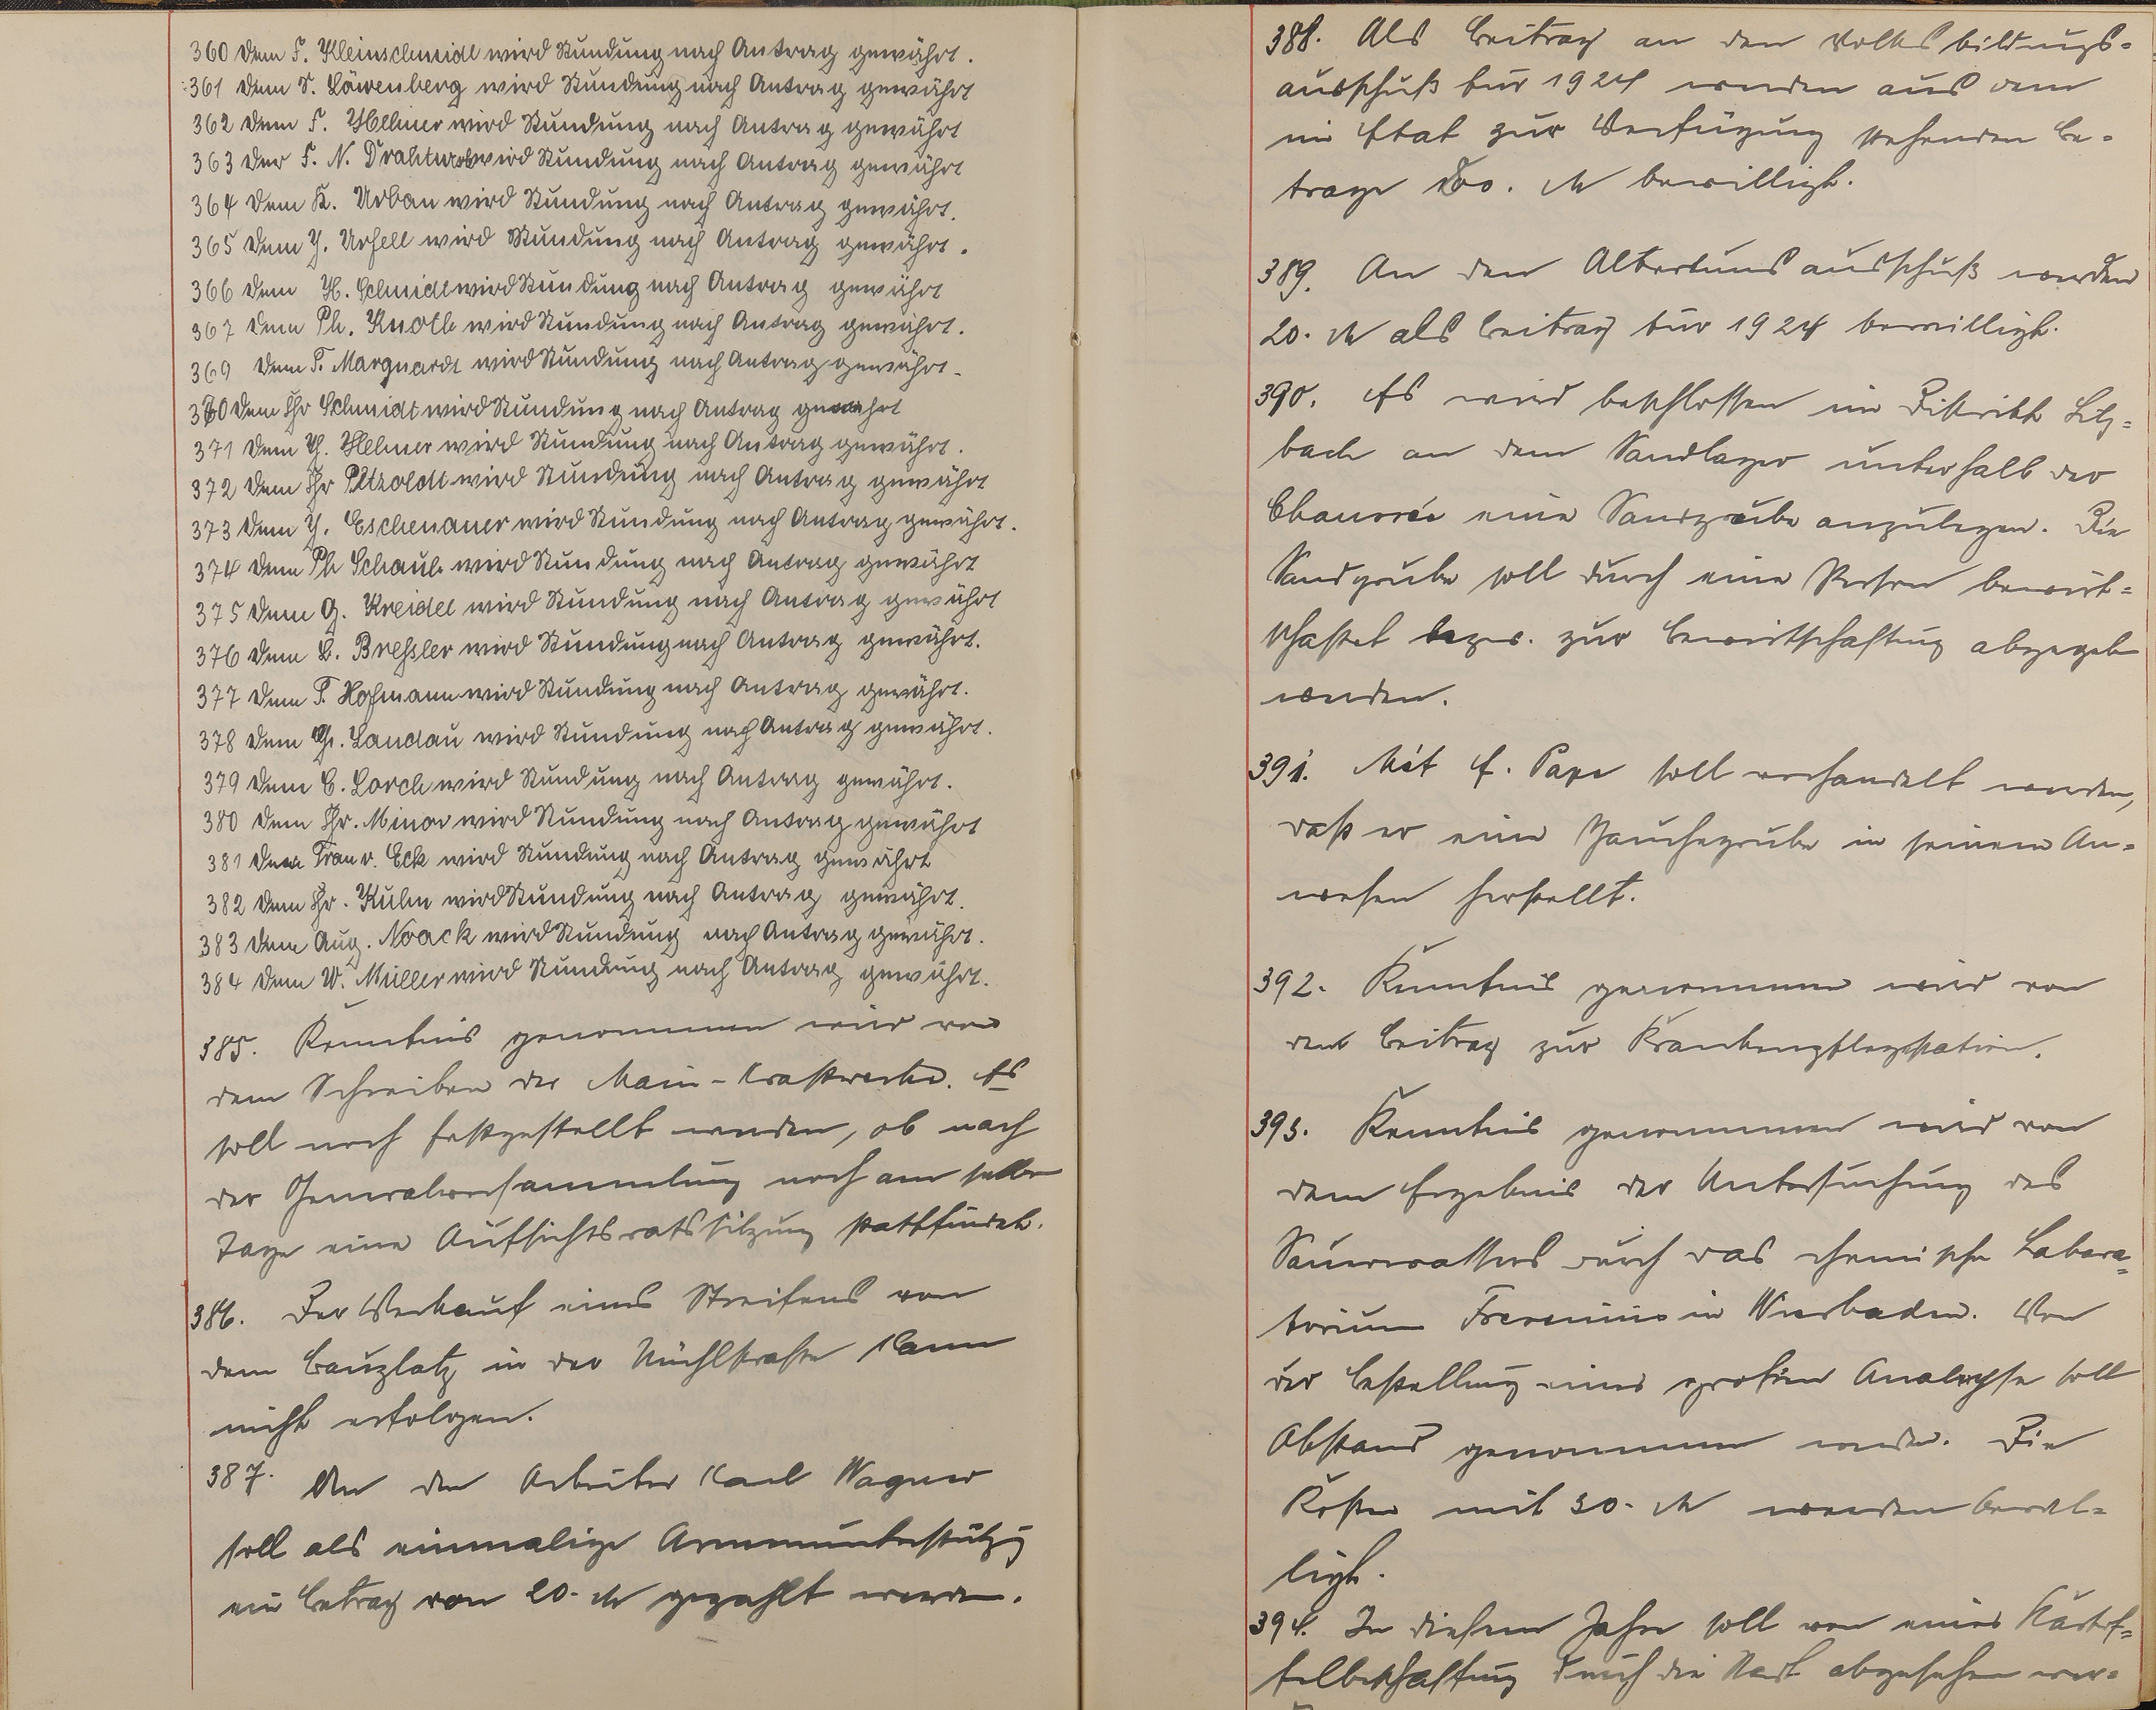 360 Dem F. Kleinschmidt wird Stundung nach Antrag gewährt.
361 Dem S. Löwenberg wird Stundung nach Antrag gewährt
362 Dem F. Hellmer wird Stundung nach Antrag gewährt
363 Der F. N. Drahtwerk wird Stundung nach Antrag gewährt
364 Dem K. Urban wird Stundung nach Antrag gewährt.
365 Dem J. Ursell wird Stundung nach Antrag gewährt.
366 Dem H. Schmidt wird Stundung nach Antrag gewährt
367 Dem Ph. Knoth wird Stundung nach Antrag gewährt.
369 Dem F. Marquardt wird Stundung nach Antrag gewährt.
370 Dem Chr Schmidt wird Stundung nach Antrag gewährt
371 Dem Hellmer wird Stundung nach Antrag gewährt.
372 Dem Chr Petzoldt wird Stundung nach Antrag gewährt
373 Dem J. Eschenauer wird Stundung nach Antrag gewährt.
374 Dem Ph Schaub wird Stundung nach Antrag gewährt
375 Dem G. Kreidel wird Stundung nach Antrag gewährt
376 Dem L. Bressler wird Stundung nach Antrag gewährt.
377 Dem F. Hofmann wird Stundung nach Antrag gewährt.
378 Dem Landau wird Stundung nach Antrag gewährt.
379 Dem C. Lorch wird Stundung nach Antrag gewährt.
380 Dem Chr. Minor wird Stundung nach Antrag gewährt
381 Der Frau v. Eck wird Stundung nach Antrag gewährt
382 Dem Chr. Kuhn wird Stundung nach Antrag gewährt.
383 Dem Aug. Noack wird Stundung nach Antrag gewährt.
384 Dem W. Müller wird Stundung nach Antrag gewährt.
385. Kenntnis genommen wird von
dem Schreiben der Main-Kraftwerke. Es
soll noch festgestellt werden, ob nach
der Generalversammlung noch am selben
Tage eine Aufsichtsratssitzung stattfindet.
386. Der Verkauf eines Streifens von
dem Bauplatz in der Mühlstrasse kann
nicht erfolgen.
387. An den Arbeiter Karl Wagner
soll als einmalige Armenunterstützg
ein Betrag von 20.- M gezahlt werden.
388. Als Beitrag an den Volksbildungs-
ausschuß für 1924 werden aus dem
im Etat zur Verfügung stehenden Be-
trage M bewilligt.
389. An den Altertumsausschuß werden
20.- M als Beitrag für 1924 bewilligt.
390. Es wird beschlossen im Distrikt Silz-
bach an dem Sandlager unterhalb der
Chaussée eine Sandgrube anzulegen. Die
Sandgrube soll durch eine Person bewirt-
schaftet bezw. zur Bewirtschaftung abgegeben
werden.
391. Mit E. Pape soll verhandelt werden,
daß er eine Jauchegrube in seinem An-
wesen herstellt.
392. Kenntnis genommen wird von
dem Beitrag zur Krankenpflegestation.
393. Kenntnis genommen wird von
dem Ergebnis der Untersuchung des
Sauerwassers durch das chemische Labora-
torium Fresenius in Wiesbaden. Von
der Bestellung einer großen Analyse soll
Abstand genommen werden. Die
Kosten mit 30.- M werden bewil-
ligt.
394. In diesem Jahre soll von einer Kartof-
felbeschaffung durch die Stadt abgesehen wer-